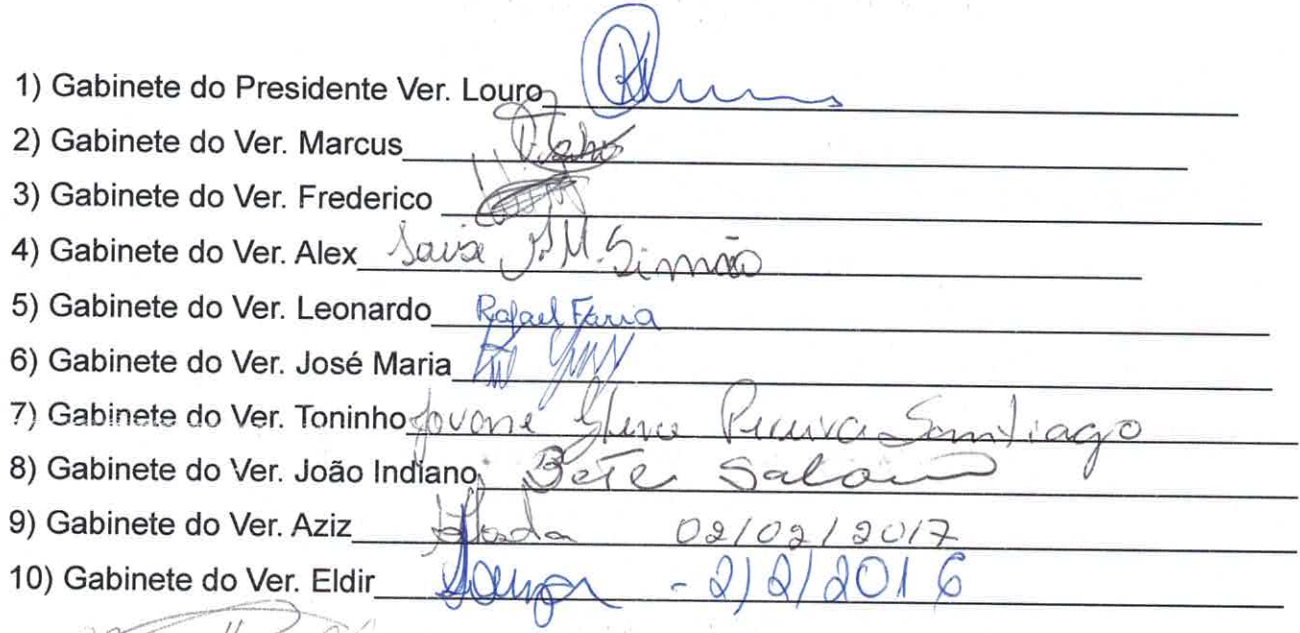 1) Gabinete do Presidente Ver. Louro
2) Gabinete do Ver. Marcus
3) Gabinete do Ver. Frederico
4) Gabinete do Ver. Alex J. M. Simão
5) Gabinete do Ver. Leonardo Rafael Faria
6) Gabinete do Ver. José Maria
7) Gabinete do Ver. Toninho Pereira Santiago
8) Gabinete do Ver. João Indiano Bete
9) Gabinete do Ver. Aziz 02/02/2017
10) Gabinete do Ver. Eldir - 2/2/2016